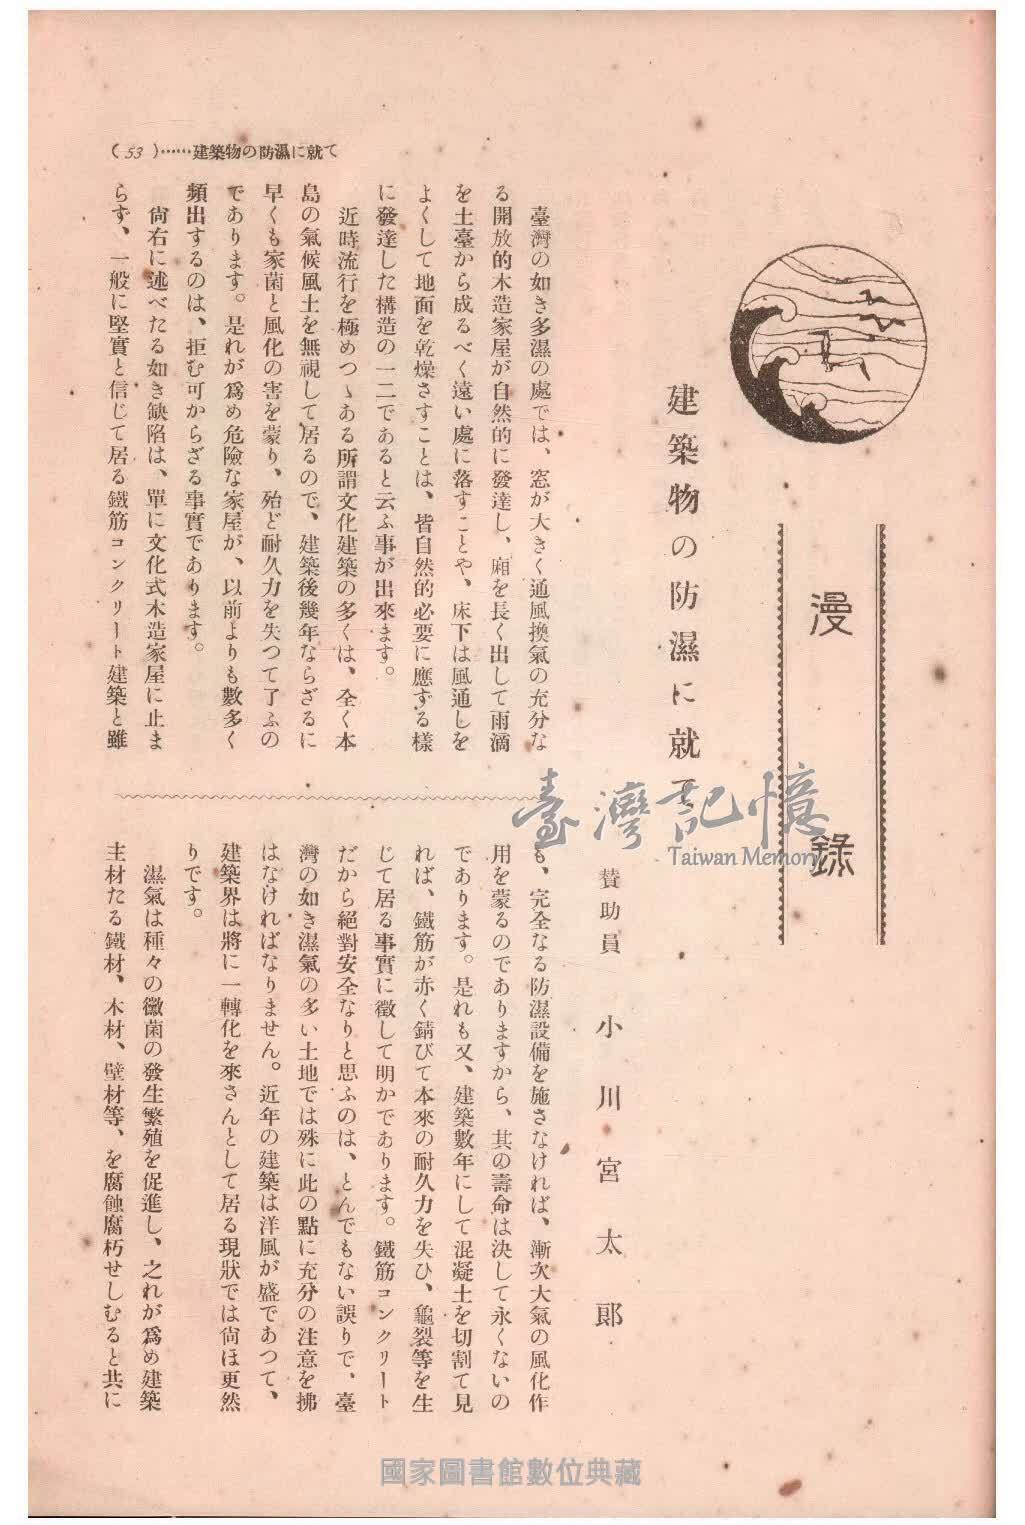 漫錄
建築物の防濕に就て
賛助員 小川宮太郎
臺灣の如き多濕の處では、窓が大きく通風換氣の充分な
る開放的木造家屋が自然的に發達し、廂を長く出して雨滴
を土臺から成るべく遠い處に落すことや、床下は風通しを
よくして地面を乾燥さすことは、皆自然的必要に應ずる樣
に發達した構造の一二であると云ふ事が出來ます。
近時流行を極めつゝある所謂文化建築の多くは、全く本
島の氣候風土を無視して居るので、建築後幾年ならざるに
早くも家菌と風化の害を蒙り、殆ど耐久力を失つて了ふの
であります。是れが爲め危險な家屋が、以前よりも數多く
頻出するのは、拒む可からざる事實であります。
尙右に述べたる如き缺陷は、單に文化式木造家屋に止ま
らず、一般に堅實と信じて居る鐵筋コンクリート建築と雖
も、完全なる防濕設備を施さなければ、漸次大氣の風化作
用を蒙るのでありますから、其の壽命は決して永くないの
であります。是れも又、建築數年にして混凝土を切割て見
れば、鐵筋が赤く錆びて本來の耐久力を失ひ、龜裂等を生
じて居る事實に徵して明かであります。鐵筋コンクリート
だから絕對安全なりと思ふのは、とんでもない誤りで、臺
灣の如き濕氣の多い土地では殊に此の點に充分の注意を拂
はなければなりません。近年の建築は洋風が盛であつて、
建築界は將に一轉化を來さんとして居る現狀では尙ほ更然
りです。
濕氣は種々の黴菌の發生繁殖を促進し、之れが爲め建築
主材たる鐵材、木材、壁材等、を腐蝕腐朽せしむると共に
(53)……建築物の防濕に就て
臺灣記憶
Taiwan Memory
國家圖書館數位典藏